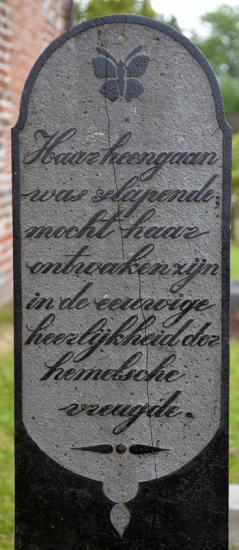 Haar heengaan
was slapende;
mocht haar
ontwaken zijn
in de eeuwige
heerlijkheid der
hemelsche
vreugde.